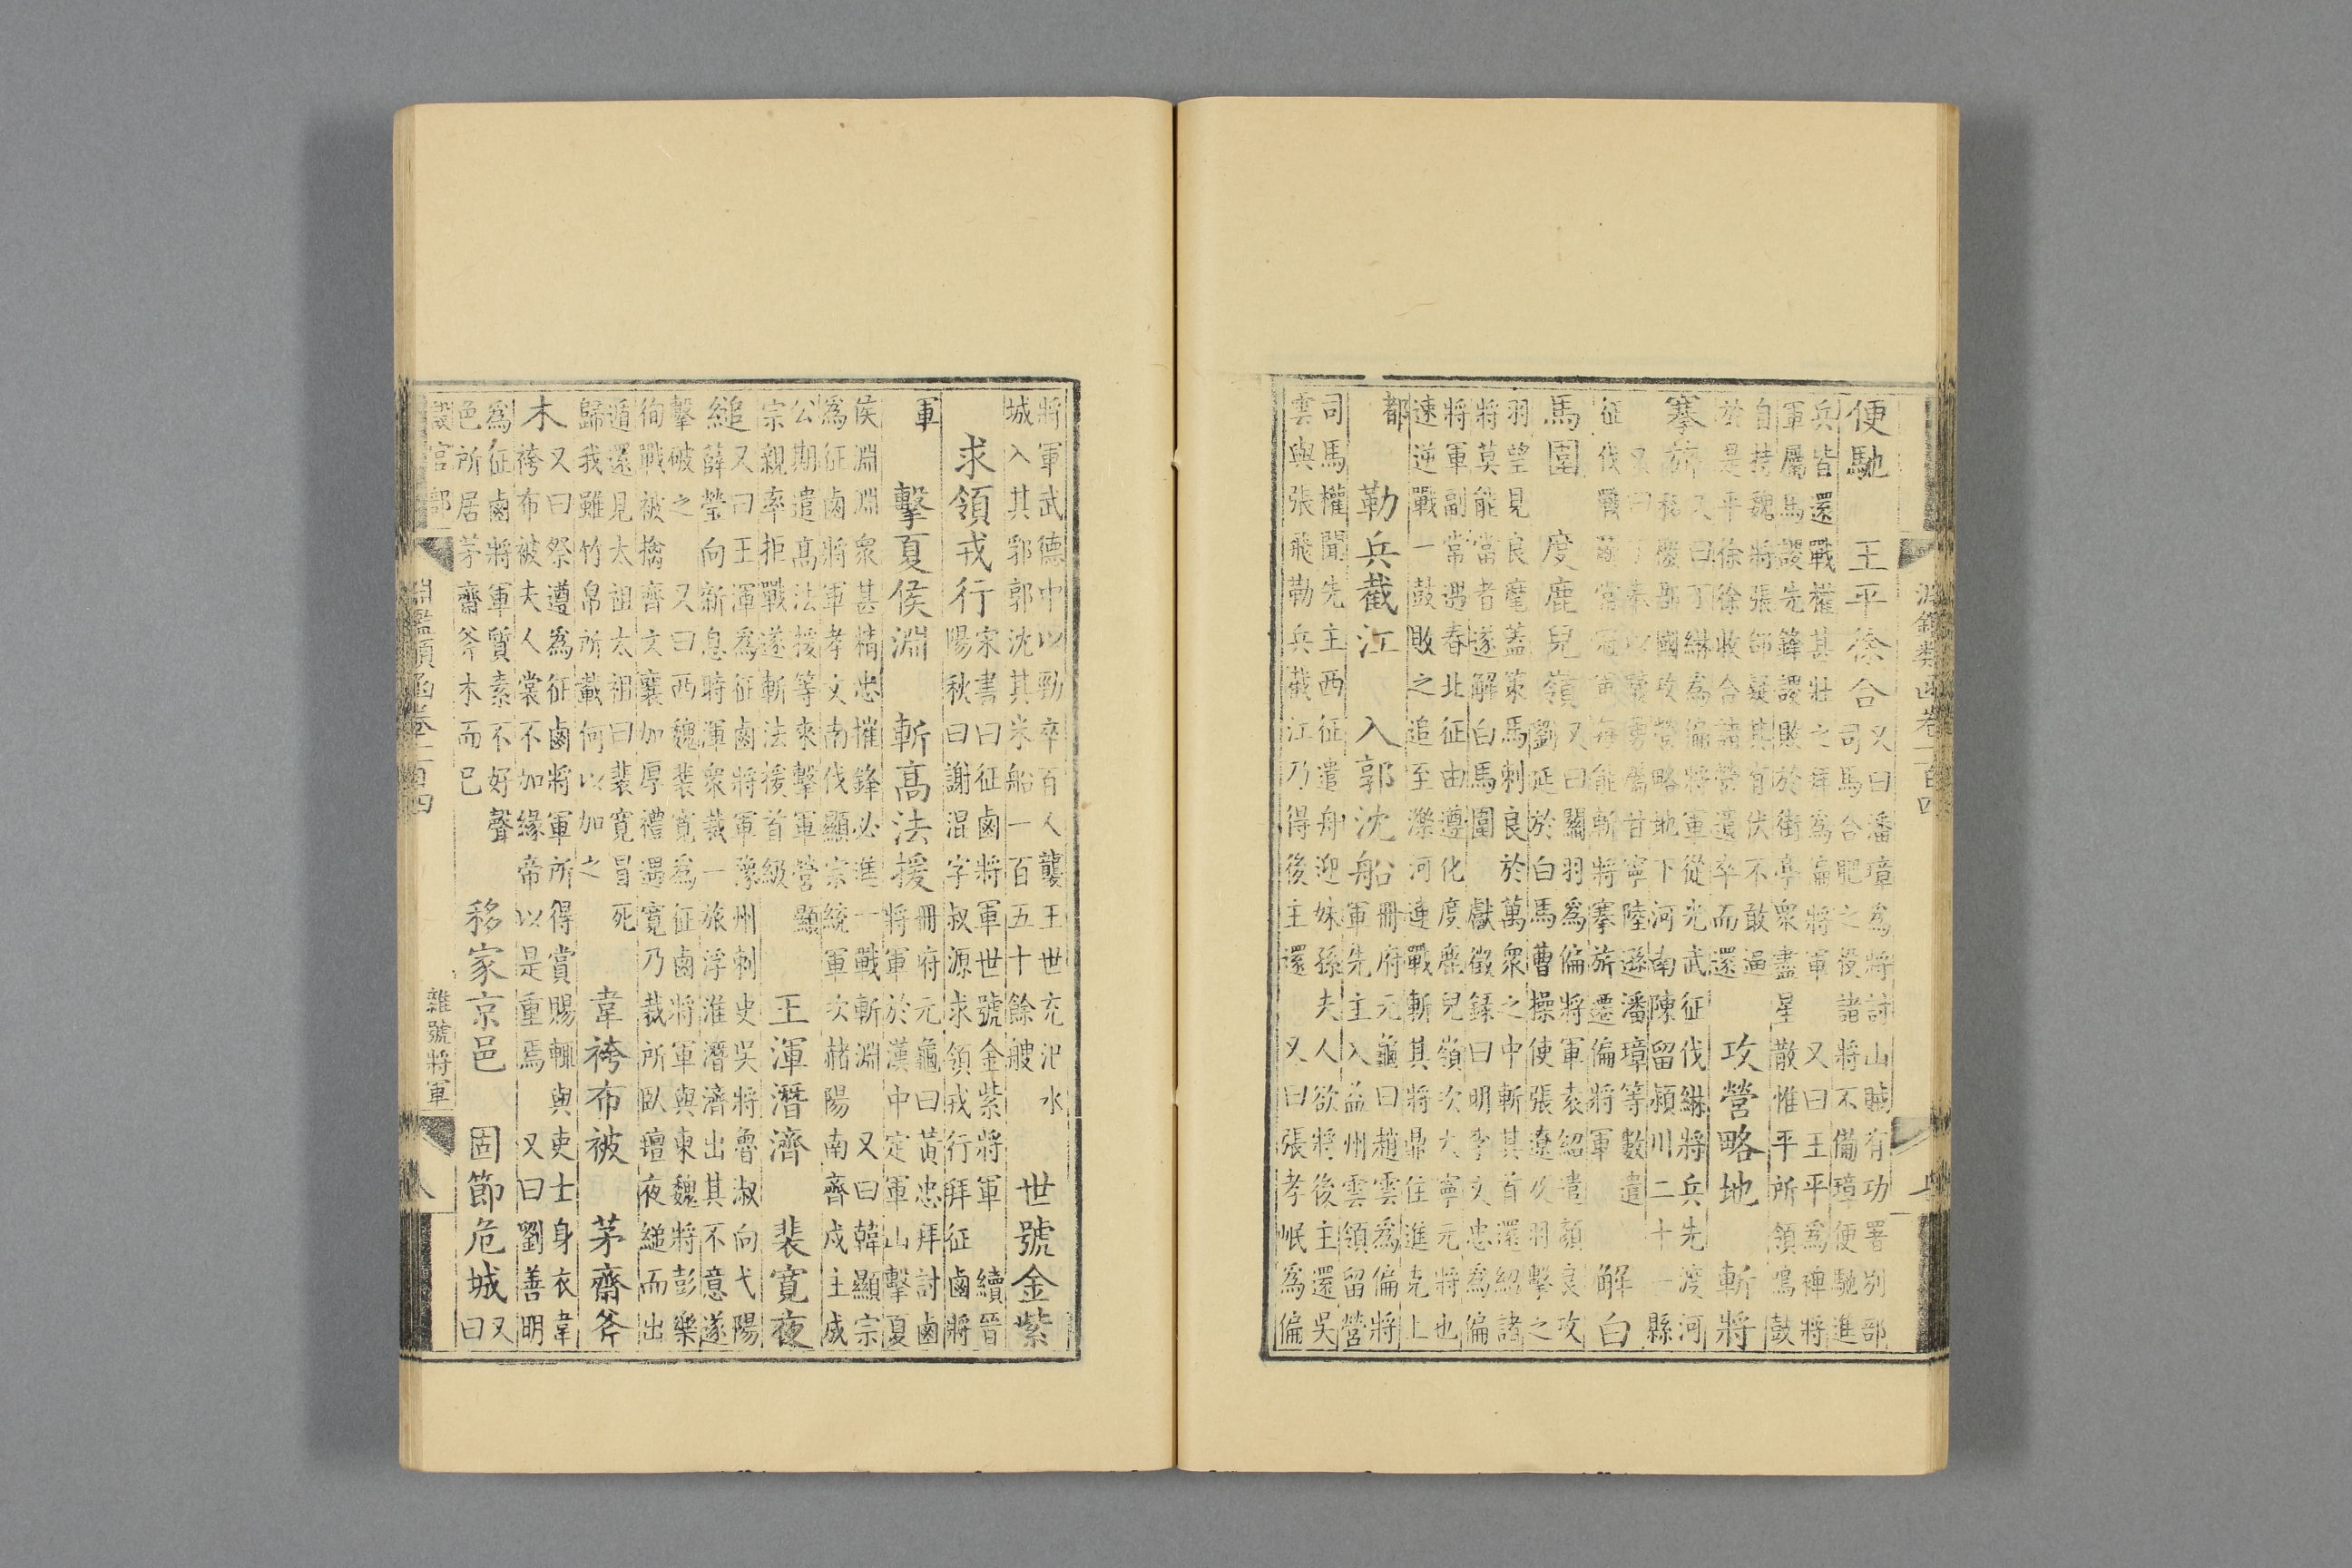 淵鑑類函卷一百四
便馳 王平徐合 又曰潘璋為將討山賊有功署別部
司馬合肥之役諸將不備璋便馳進
兵皆還戰權甚壯之拜為偏將軍 又曰王平為裨將
軍屬馬謖先鋒謖敗於街亭眾盡星散惟平所領鳴鼓
自持魏將張郃疑其有伏不敢逼
於是平徐徐收合諸營遺卒而還 攻營略地 斬將
搴旂 又曰丁綝為偏將軍從光武征伐綝將兵先渡河
移檄郡國攻營略地下河南陳留潁川二十一縣
又曰丁奉以驍勇屬甘寧陸遜潘璋等數遣
征伐戰鬪常冠軍每能斬將搴旂遷偏將軍 解白
馬圍 度鹿兒嶺 又曰關羽為偏將軍袁紹遣顏良攻
劉延於白馬曹操使張遼及羽擊之
羽望見良麾蓋策馬刺良於萬眾之中斬其首還紹諸
將莫能當者遂解白馬圍 獻徵錄曰明李文忠為偏
將軍副常遇春北征由遵化度鹿兒嶺次大寧元將也
速逆戰一鼓敗之追至灤河連戰斬其將鼎住進克上
都 勒兵截江 入郭沈船 冊府元龜曰趙雲為偏將
軍先主入益州雲領留營
司馬權聞先主西征遣舟迎妹孫夫人欲將後主還吳
雲與張飛勒兵截江乃得後主還 又曰張孝岷為偏
將軍武德中以勁卒百人襲王世充汜水
城入其郛郭沈其米船一百五十餘艘 世號金紫
求領戎行 宋書曰征鹵將軍世號金紫將軍 續晉
陽秋曰謝混字叔源求領戎行拜征鹵將
軍 擊夏侯淵 斬高法援 冊府元龜曰黃忠拜討鹵
將軍於漢中定軍山擊夏
侯淵淵眾甚精忠摧鋒必進一戰斬淵 又曰韓顯宗
為征鹵將軍孝文南伐顯宗統軍次赭陽南齊戍主成
公期遣高法援等來擊軍營顯
宗親率拒戰遂斬法援首級 王渾潛濟 裴寬夜
縋 又曰王渾為征鹵將軍豫州刺史吳將魯淑向弋陽
薛瑩向新息時渾眾裁一旅浮淮潛濟出其不意遂
擊破之 又曰西魏裴寬為征鹵將軍與東魏將彭樂
恂戰被擒齊文襄加厚禮遇寬乃裁所臥氊夜縋而出
遁還見太祖太祖曰裴寬冒死
歸我雖竹帛所載何以加之 韋袴布被 茅齋斧
木 又曰祭遵為征鹵將軍所得賞賜輒與吏士身衣韋
袴布被夫人裳不加緣帝以是重焉 又曰劉善明
為征鹵將軍質素不好聲
色所居茅齋斧木而已 移家京邑 固節危城 又
曰
設官部 淵鑑類函卷一百四 雜號將軍 八